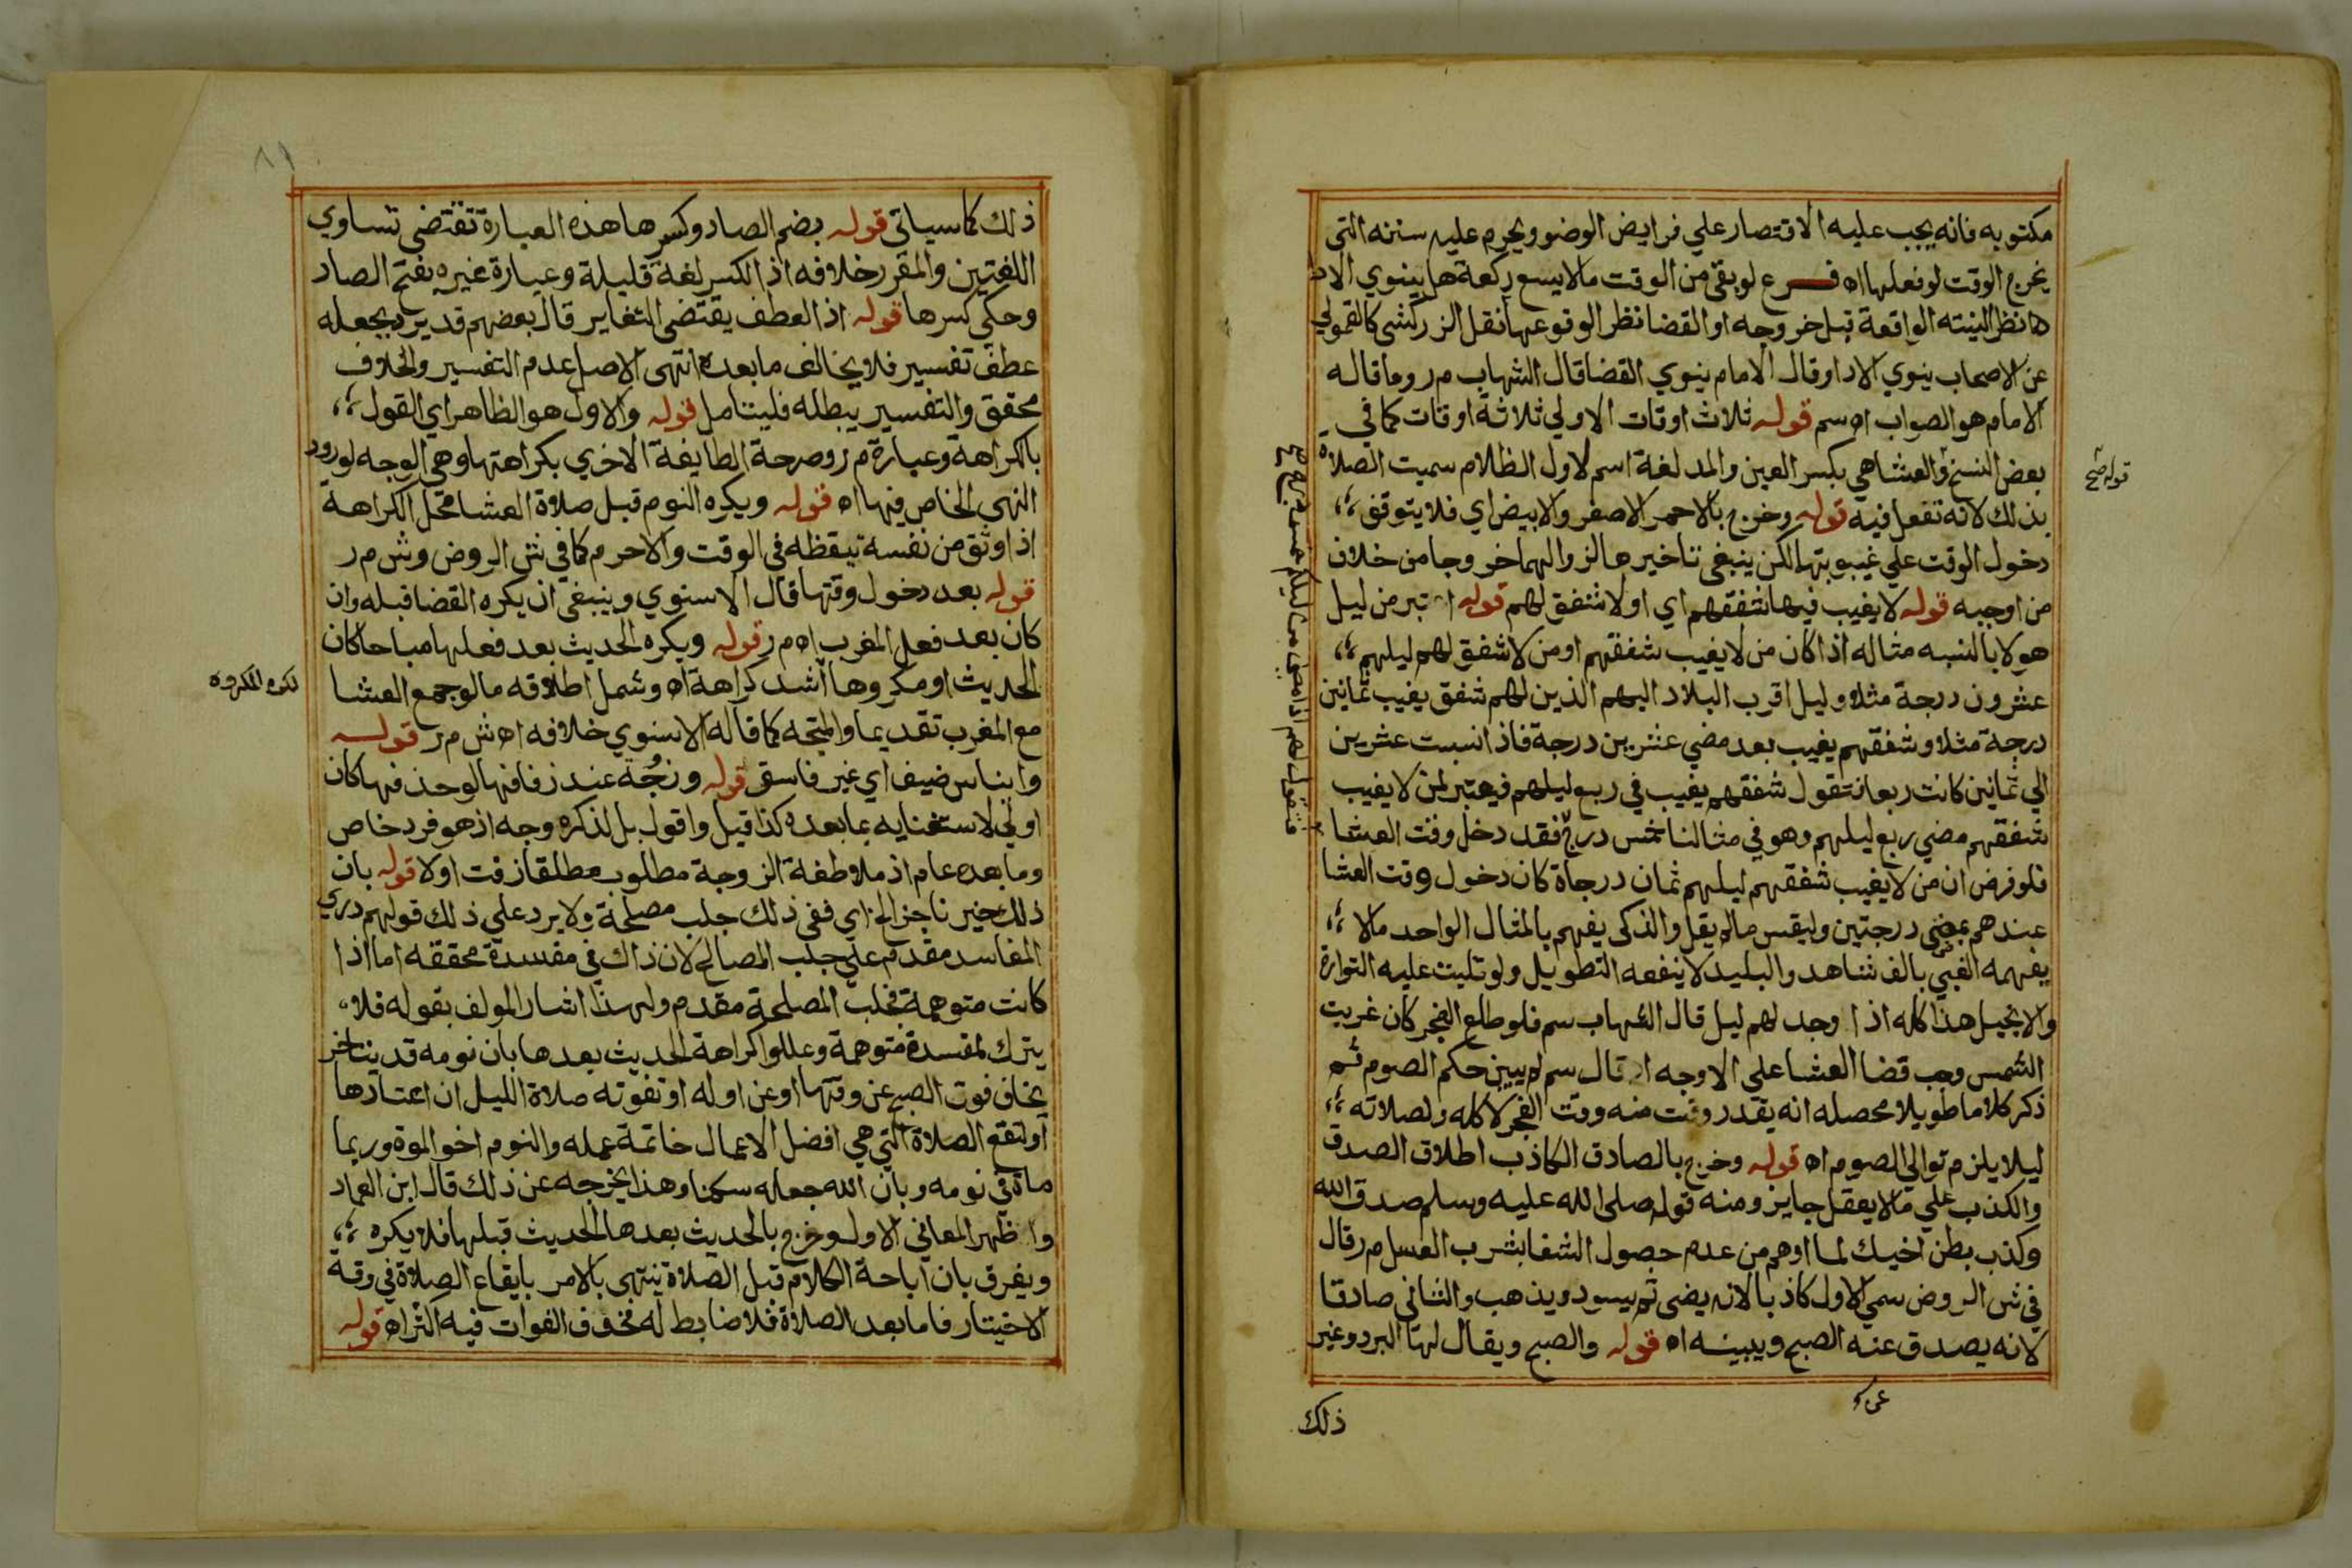 مكتوبه فانه يجب عليه الاقتصار علي فرايض الوضو ويحرم عليه سننه التي
يخرج الوقت لو فعلها اه فرع لو بقي من الوقت ما لا يسع ركعة هل ينوي الاد
ها نظر البنته الواقعة قبل خروجه او القضا نظر الوقوعها نقل الزركشي كالقمولي
عن الاصحاب ينوي الادا وقال الامام ينوي القضا قال الشهاب م ر وما قاله
الامام هو الصواب اه سم قوله ثلاث اوقات الاولي ثلاثة اوقات كما في
بعض النسخ والعشا هي بكسر العين والمد لغة اسم لاول الظلام سميت الصلاة
قوله صح
بذلك لانه تفعل فيه قوله وخرج بالاحمر الاصفر والابيض اي فلا يتوقف
دخول الوقت علي غيبوبتها لكن ينبغي تاخيرها لزوالهما خروجا من خلاف
من اوجبه قوله لا يغيب فيها شفقهم اي او لا شفق لهم قوله تبر من ليل
هولا بالنسبه مثاله اذا كان من لا يغيب شفقهم او من لا شفق لهم ليلهم
عشرون درجة مثلا وليل اقرب البلاد اليهم الذين لهم شفق يغيب ثمانين
درجة مثلا وشفقهم يغيب بعد مضي عشرين درجة فاذا نسبت عشرين
الي ثمانين كانت ربعا فتقول شفقهم يغيب في ربع ليلهم فيعتبر لمن لا يغيب
شفقهم مضي ربع ليلهم وهو في مثالنا خمس درج فقد دخل وقت العشا
فلو فرض ان من لا يغيب شفقهم ليلهم ثمان درجاة كان دخول وقت العشا
عندهم بمضي درجتين وليقس ما لم يقل والذكي يفهم بالمثال الواحد ما لا
يفهمه الغبي بالف شاهد والبليد لا ينفعه التطويل ولو تليت عليه التوراة
والانجيل هذا كله اذا وجد لهم ليل قال الشهاب سم فلو طلع الفجر كان غربت
الشمس وجب قضا العشا علي الاوجه اه قال سم لم يبين حكم الصوم ثم
ذكر كلاما طويلا محصله انه يقدر وقت منه وقت الفجر لاكله ولصلاته
ليلا يلزم توالي الصوم اه قوله وخرج بالصادق الكاذب اطلاق الصدق
والكذب علي ما لا يعقل جايز ومنه قوله صلى الله عليه وسلم صدق الله
وكذب بطن اخيك لما اوهم من عدم حصول الشفا بشرب العسل م ر قال
في ش الروض سمي الاول كاذبا لانه يضي ثم يسود ويذهب والثاني صادقا
لانه يصدق عنه الصبح ويبينه اه قوله والصبح ويقال لها البرد وغير
ذلك
٨١
ذلك كما سياتي قوله بضم الصاد وكسرها هذه العبارة تقتضي تساوي
اللغتين والمقرر خلافه اذ الكسر لغة قليلة وعبارة غيره بفتح الصاد
وحكي كسرها قوله اذ العطف يقتضي التغاير قال بعضهم قد يرد بجعله
عطف تفسير فلا يخالف ما بعده انتهى الاصل عدم التفسير والخلاف
محقق والتفسير يبطله فليتامل قوله والاول هو الظاهر اي القول
بالكراهة وعبارة م ر وصرحة الطايفة الاخري بكراهتها وهي الوجه لورود
النهي الخاص فيها اه قوله ويكره النوم قبل صلاة العشا محل الكراهة
اذا وثق من نفسه تيقظه في الوقت والا حرم كما في ش الروض وش م ر
قوله بعد دخول وقتها قال الاسنوي وينبغي ان يكره القضا قبله وان
كان بعد فعل المغرب اه م ر قوله ويكره الحديث بعد فعلها مباحا كان
الحديث او مكروها اشد كراهة اه وشمل اطلاقه ما لو جمع العشا
لكن المكروه
مع المغرب تقديما والمتجه كما قاله الاسنوي خلافه اه ش م ر قوله
وايناس ضيف اي غير فاسق قوله وزجُة عند زفافها لو حذفها كان
اولي لاستغنايه بما بعده كذا قيل واقول بل لذكره وجه اذ هو فرد خاص
وما بعده عام اذ ملاطفة الزوجة مطلوب مطلقا زفت اولا قوله بان
ذلك خير ناجز الخ اي ففي ذلك جلب مصلحة ولا يرد علي ذلك قولهم دري
المفاسد مقدم علي جلب المصالح لان ذاك في مفسدة محققه اما اذا
كانت متوهمة فجلب المصلحة مقدم ولهذا اشار المولف بقوله فلا
يترك لمفسدة متوهمة وعللوا كراهة الحديث بعدها بان نومه قد يتاخر
يخاف فوت الصبح عن وقتها او عن اوله او تفوته صلاة الليل ان اعتادها
او لتقع الصلاة التي هي افضل الاعمال خاتمة عمله والنوم اخو الموة وربما
ماة في نومه وبان الله جعله سكنا وهذا يخرجه عن ذلك قال ابن العماد
واظهر المعاني الاول وخرج بالحديث بعدها الحديث قبلها فلا يكره
ويفرق بان اباحة الكلام قبل الصلاة ينتهي بالامر بايقاع الصلاة في وقة
الاختيار فاما بعد الصلاة فلا ضابط له فخوف الفوات فيه اكثر اه قوله